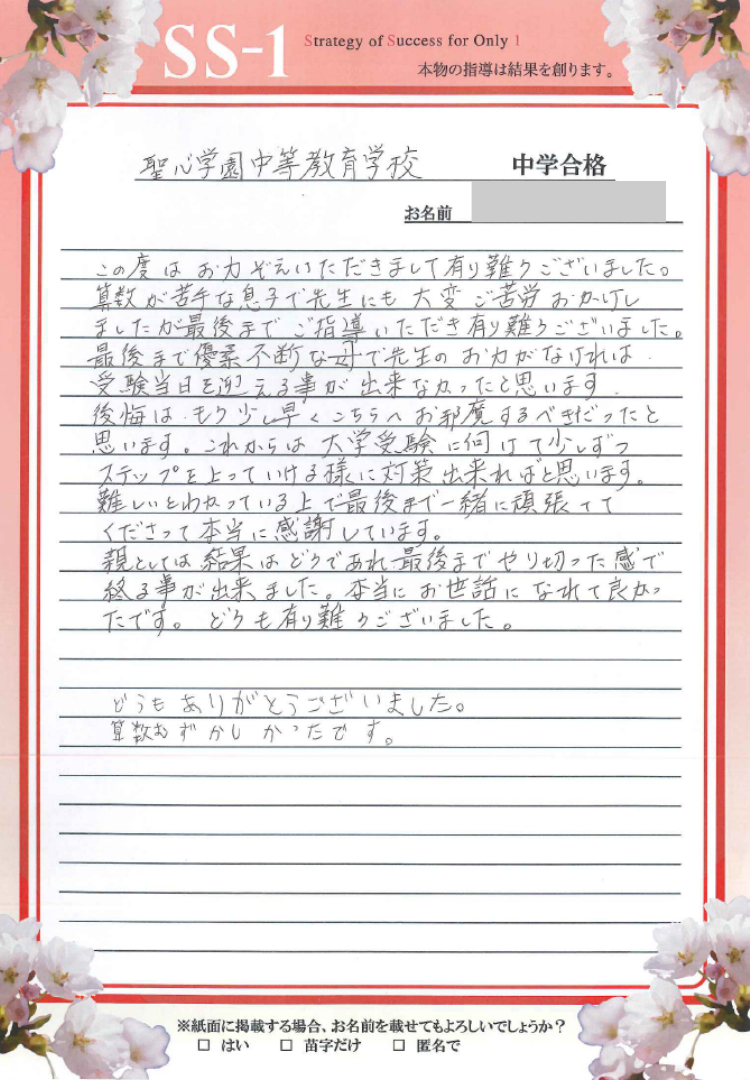 SS-1 Strategy of Success for Only 1
本物の指導は結果を創ります。
聖心学園中等教育学校 中学合格
お名前
この度は お力ぞえいただきまして有り難うございました。
算数が苦手な息子で先生にも 大変ご苦労おかけし
ましたが最後までご指導いただき有り難うございました。
最後まで優柔不断な母で先生のお力がなければ
受験当日を迎える事が出来なかったと思います。
後悔は もう少し早くこちらへお邪魔するべきだったと
思います。これからは大学受験に向けて少しずつ
ステップを上っていける様に対策出来ればと思います。
難しいとわかっている上で最後まで一緒に頑張って
くださって本当に感謝しています。
親としては結果はどうであれ最後までやり切った感で
終る事が出来ました。本当にお世話になれて良かっ
たです。どうも有り難うございました。
どうもありがとうございました。
算数むずかしかったです。
※紙面に掲載する場合、お名前を載せてもよろしいでしょうか？
□ はい □ 苗字だけ □ 匿名で